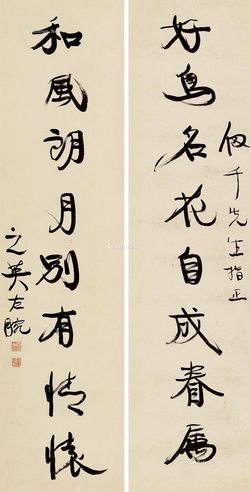 伯千先生指正
好鸟名花自成眷属
和風朗月別有情懷
之英左腕